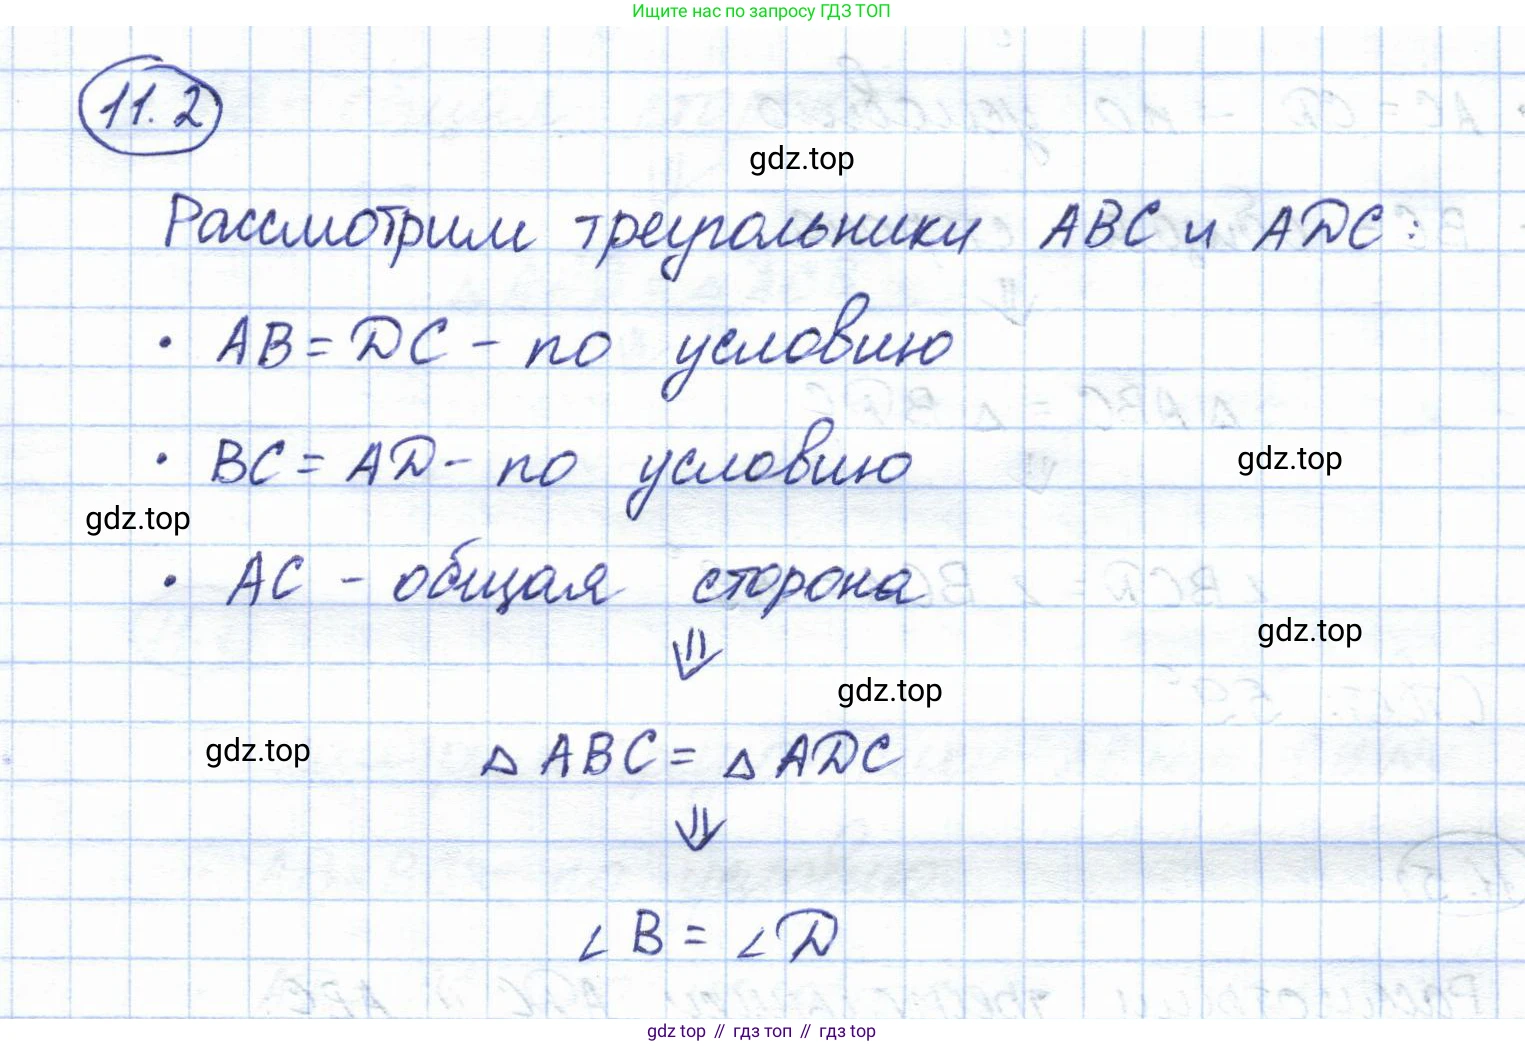 Ищите нас по запросу ГДЗ ТОП
11.2
gdz.top
Рассмотрим треугольники ABC и ADC:
• AB = DC - по условию
• BC = AD - по условию
gdz.top
gdz.top
• AC - общая сторона
gdz.top
⇓
gdz.top
gdz.top
△ ABC = △ ADC
⇓
∠ B = ∠ D
gdz top // гдз топ // гдз top